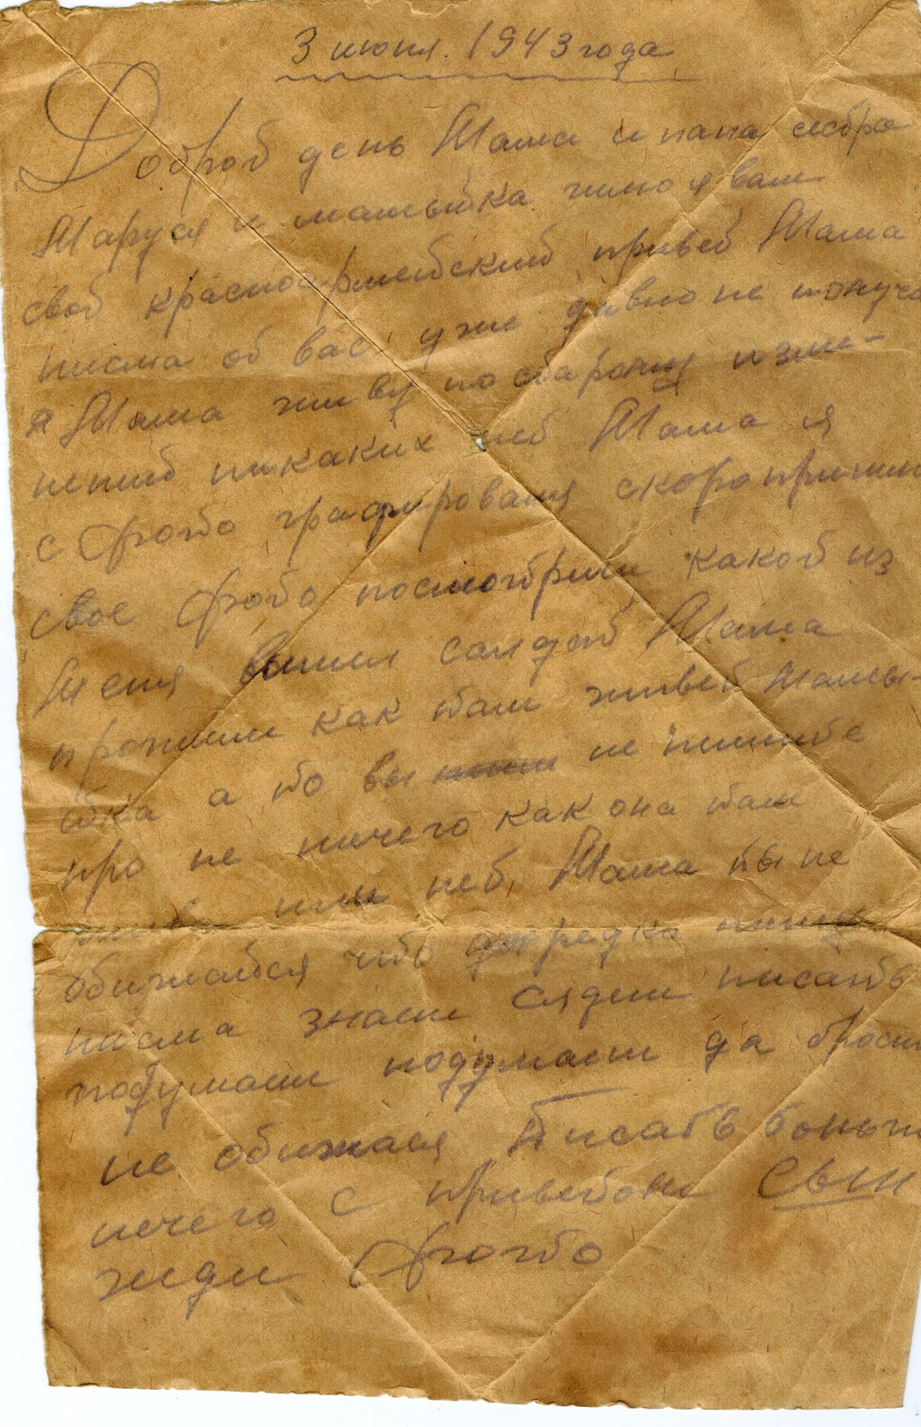 3 июня. 1943 года
Доброй день Мама и папа сестра
Маруся и малышка шлю я вам
свой красноармейский привет Мама
писма от вас уже давно не получа
я Мама живу по старому изме-
нений никаких нет Мама я
с фото графировался скоро пришлю
свое фото посмотрите какой из
Меня вышел салдат Мама
пропиши как там живет малы-
шка а то вы не пишите
про не ничего как она там
или нет, Мама ты не
обижайся что редко пишу
писма знаеш сядеш писать
подумаеш подумаеш да бросиш
не обижася Писать больш
нечего с приветом сын
жди фото